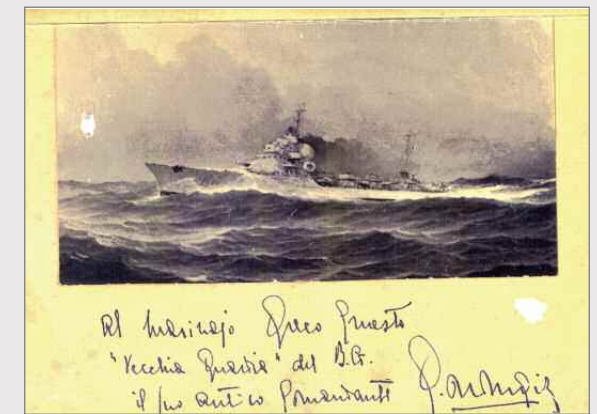 Al marinajo Greco Ernesto
"Vecchia Guardia" del B.G.
il suo antico Comandante